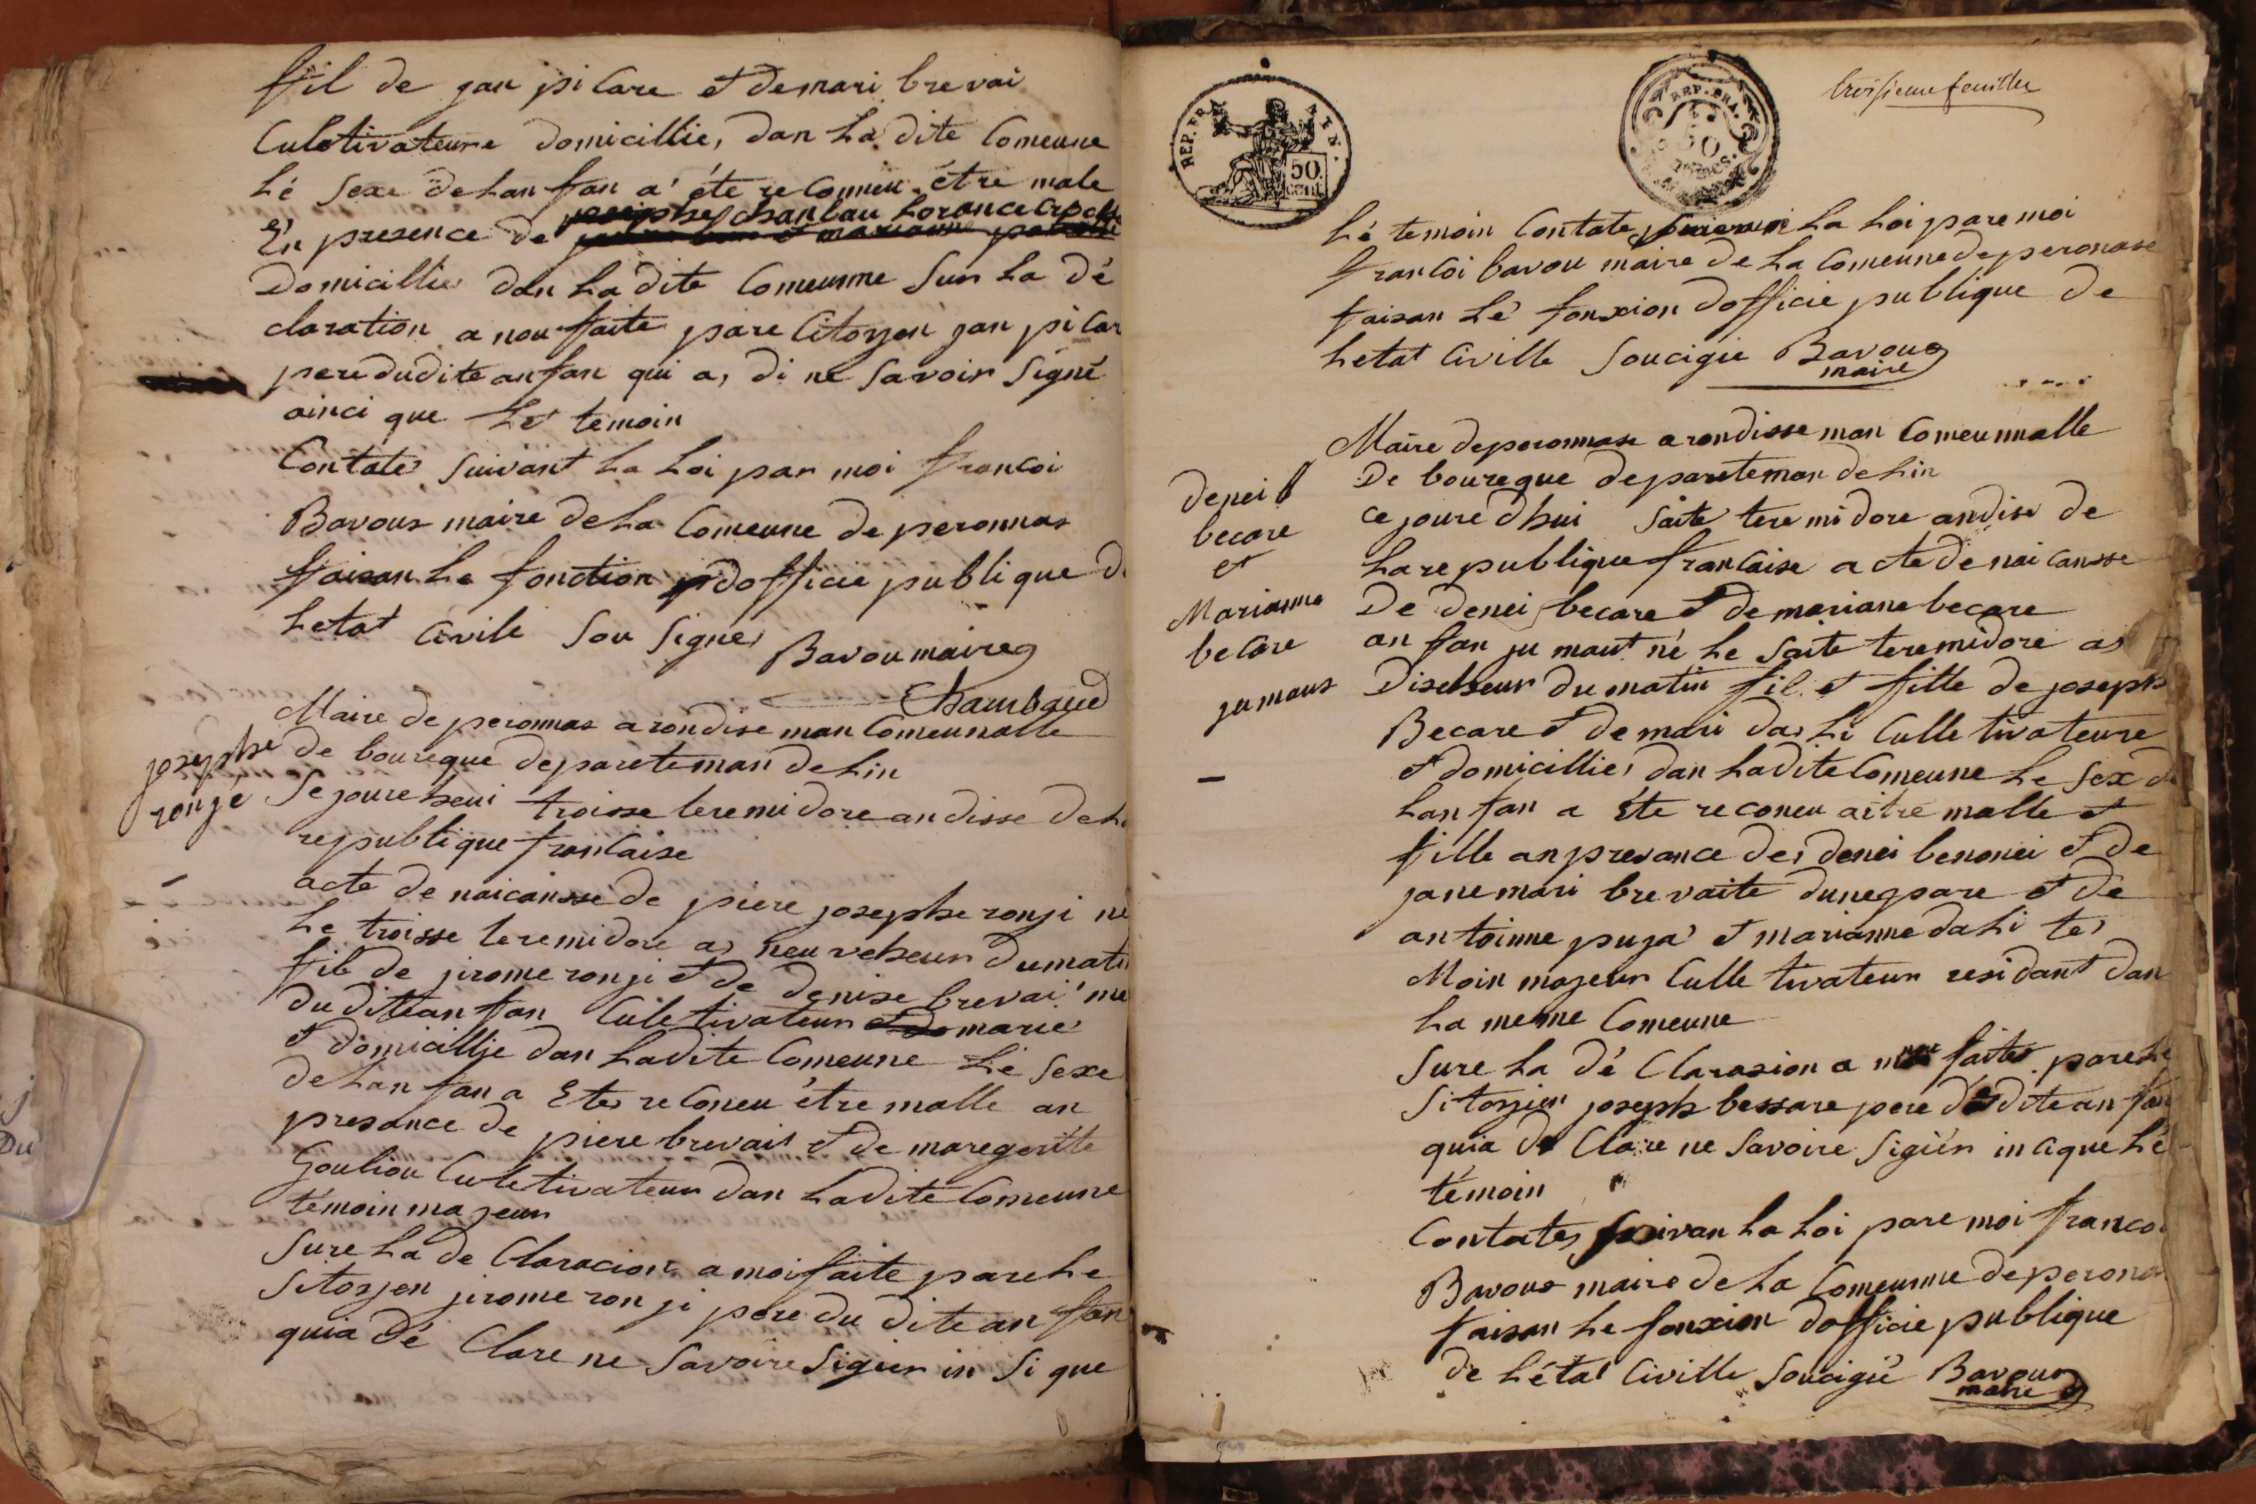 fil de jan pi Care et demari brevai
Culetivateure domicillie, dan La dite Comeune
Lé Sexe de Lanfan a' éte reConneu être male
josephe chanbau Lorance
En presence de
Domicillie, dan La dite Comeunne Sur La dé
claration a nou faite pare Citoyen jan pi Car
pere dudite anfan qui a, di ne Savoir Signé
ainci que Les temoin
Contate, Suivant La Loi par moi francoi
Bavoux maire de La Comeune de peronnas
faisan Le fonction dofficie publique d
Letat Civile Sou Signé,
Bavou maire
Chambaud
Maire de peronnas arondiseman Comeunalle
de boureque depareteman de Lin
josephe
ronjé
Se joureheui troisse teremidore an disse de L
republique francaise
acte de naicansse de piere josephe ronji né
Le troisse teremidore a, neuveheur dumati
fil de jirome ronji et de denise brevai me
du diteanfan Culetivateur marié
et domicillie dan Ladite Comeune Lé Sexe
de Lanfan a Ete, reConeu être malle an
presance de piere brevait et de maregerite
Gouliou Culetivateur dan Ladite Comeune
témoin majeur
Sure La de Claracion a moi faite pare Le
Sitoyen jirome ronji pere du dite an fan
quia dé Clare ne Savoire Sigier in Si que
REP. FRA. 50 cent.
REP. FRA.
troisieme feuillee
Lé temoin Contate La Loi pare moi
francoi bavou maire de La Comeune de peronase
faisan Lé fonxion dofficie publique de
Letat Civille Soucigié Bavoux
maire
Maire deperonnase arondisseman Comeunnalle
De boureque depareteman de Lin
denei
becare
et
Marianne
beCare
jumaus
ce joure dhui Saite teremidore andise de
La republique francaise acte de naicansse
De denei becare et de mariane becare
an fan jumaut né Le Saite teremidore as
Diseheur du matin fil et fille de joseph
Becare et de mari da, Li Culletivateure
et domicillie, dan Ladite Comeune Le Sex d
Lanfan a éte reconeu aitre malle et
fille anpresance de, denei benonei et de
jane mari brevaite dunepare et de
antoinne puja' et marianne daLi te,
Moin majeur Culletivateur residant dan
La meme Comeune
Sure La dé Clarasion a faite pare Le
Sitoyien joseph bessare pere dudite an fan
quia dé Clare ne Savoire Sigiér in cique Lé
témoin
Contate, Suivan La Loi pare moi francoi
Bavoux maire de La Comeunne de perona
faisan Le fonxion dofficie publique
de Létat Civille Soucigié Bavoux
maire